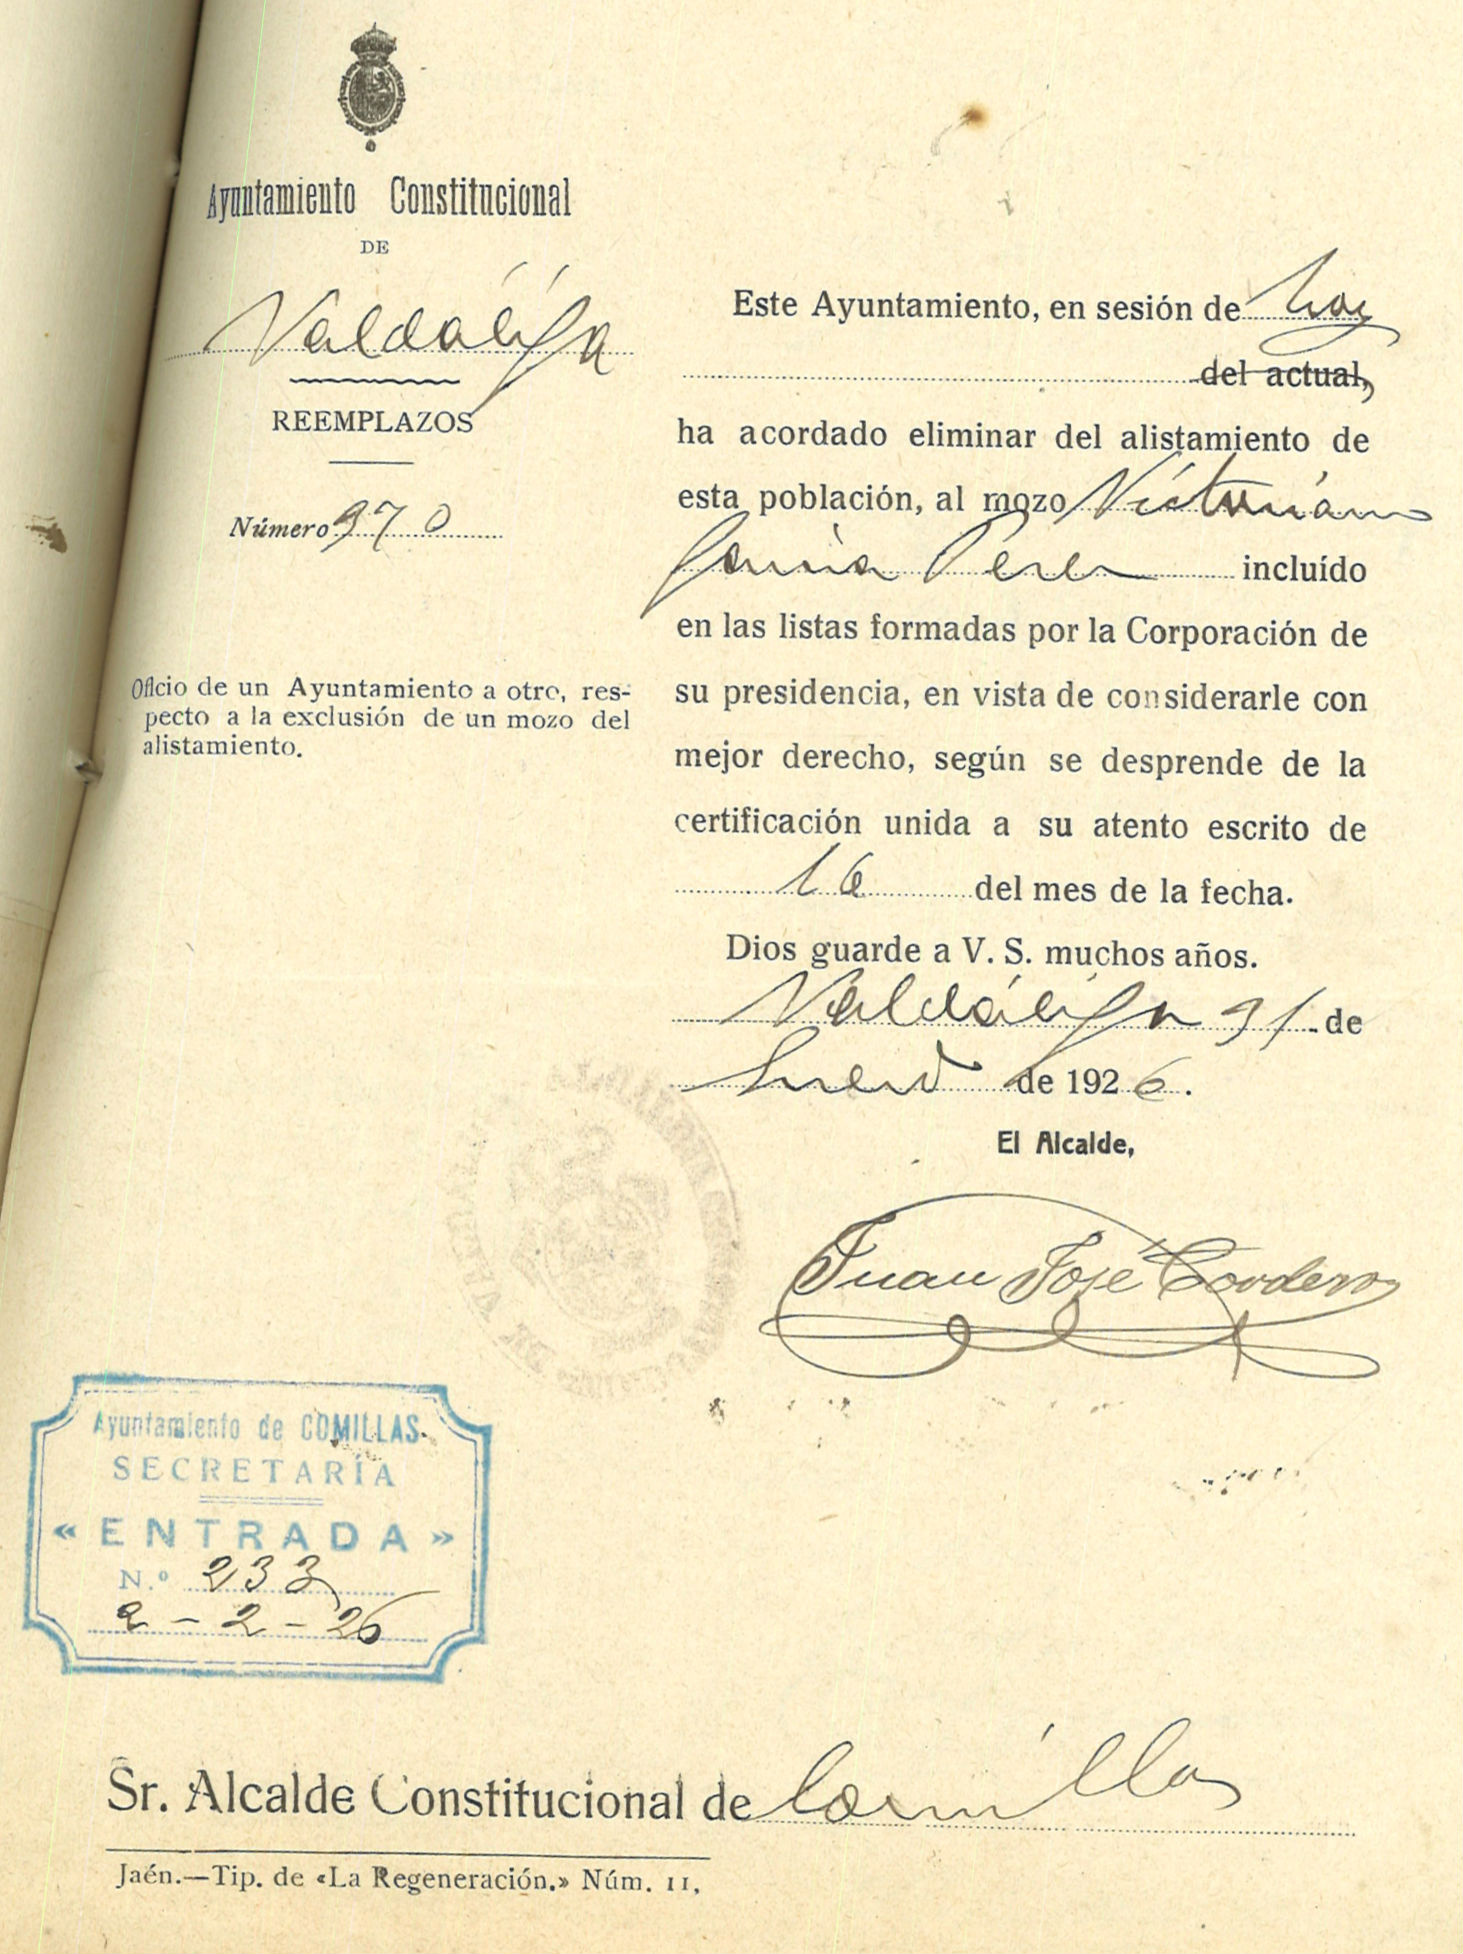 Ayuntamiento Constitucional
DE
Valdáliga
REEMPLAZOS
Número 970
Oficio de un Ayuntamiento a otro, res-
pecto a la exclusión de un mozo del
alistamiento.
Este Ayuntamiento, en sesión de hoy
del actual,
ha acordado eliminar del alistamiento de
esta población, al mozo Victoriano
Garcia Perez incluído
en las listas formadas por la Corporación de
su presidencia, en vista de considerarle con
mejor derecho, según se desprende de la
certificación unida a su atento escrito de
16 del mes de la fecha.
Dios guarde a V. S. muchos años.
Valdáliga 31 de
Enero de 1926.
El Alcalde,
Juan José Cordero
Ayuntamiento de COMILLAS
SECRETARÍA
« ENTRADA »
N.º 233
2-2-26
Sr. Alcalde Constitucional de Comillas
Jaén.—Tip. de «La Regeneración.» Núm. 11,